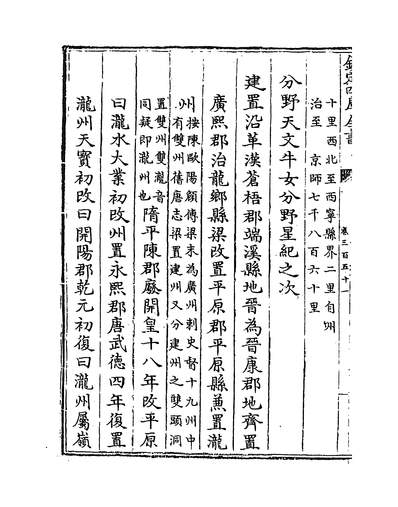 欽定四庫全書
卷三百五十一
十里西北至西寧縣界二里自州
治至 京師七千八百六十里
分野天文牛女分野星紀之次
建置沿革漢蒼梧郡端溪縣地晉為晉康郡地齊置
廣熙郡治龍鄉縣梁改置平原郡平原縣兼置瀧
州按陳歐陽頠傳梁末為廣州刺史督十九州中
有雙州舊唐志梁置建州又分建州之雙頭洞
置雙州雙瀧音
同疑即瀧州也隋平陳郡廢開皇十八年改平原
曰瀧水大業初改州置永熙郡唐武德四年復置
瀧州天寶初改曰開陽郡乾元初復曰瀧州屬嶺